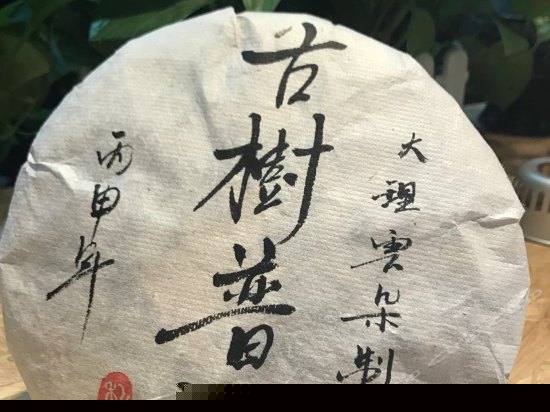 大理雲朵制
古樹普
丙申年